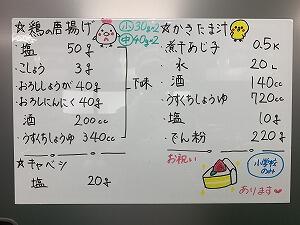 ☆鶏の唐揚げ
小 30g×2
中 40g×2
・塩 50g
・こしょう 3g
・おろししょうが 40g
・おろしにんにく 40g
酒 200cc
・うすくちしょうゆ 340cc
下味
☆キャベツ
塩 20g
☆かきたま汁
・煮干あじ子 0.5K
・水 20L
・酒 140cc
・うすくちしょうゆ 720cc
・塩 10g
・でん粉 220g
お祝い
小学校のみ
あります♥